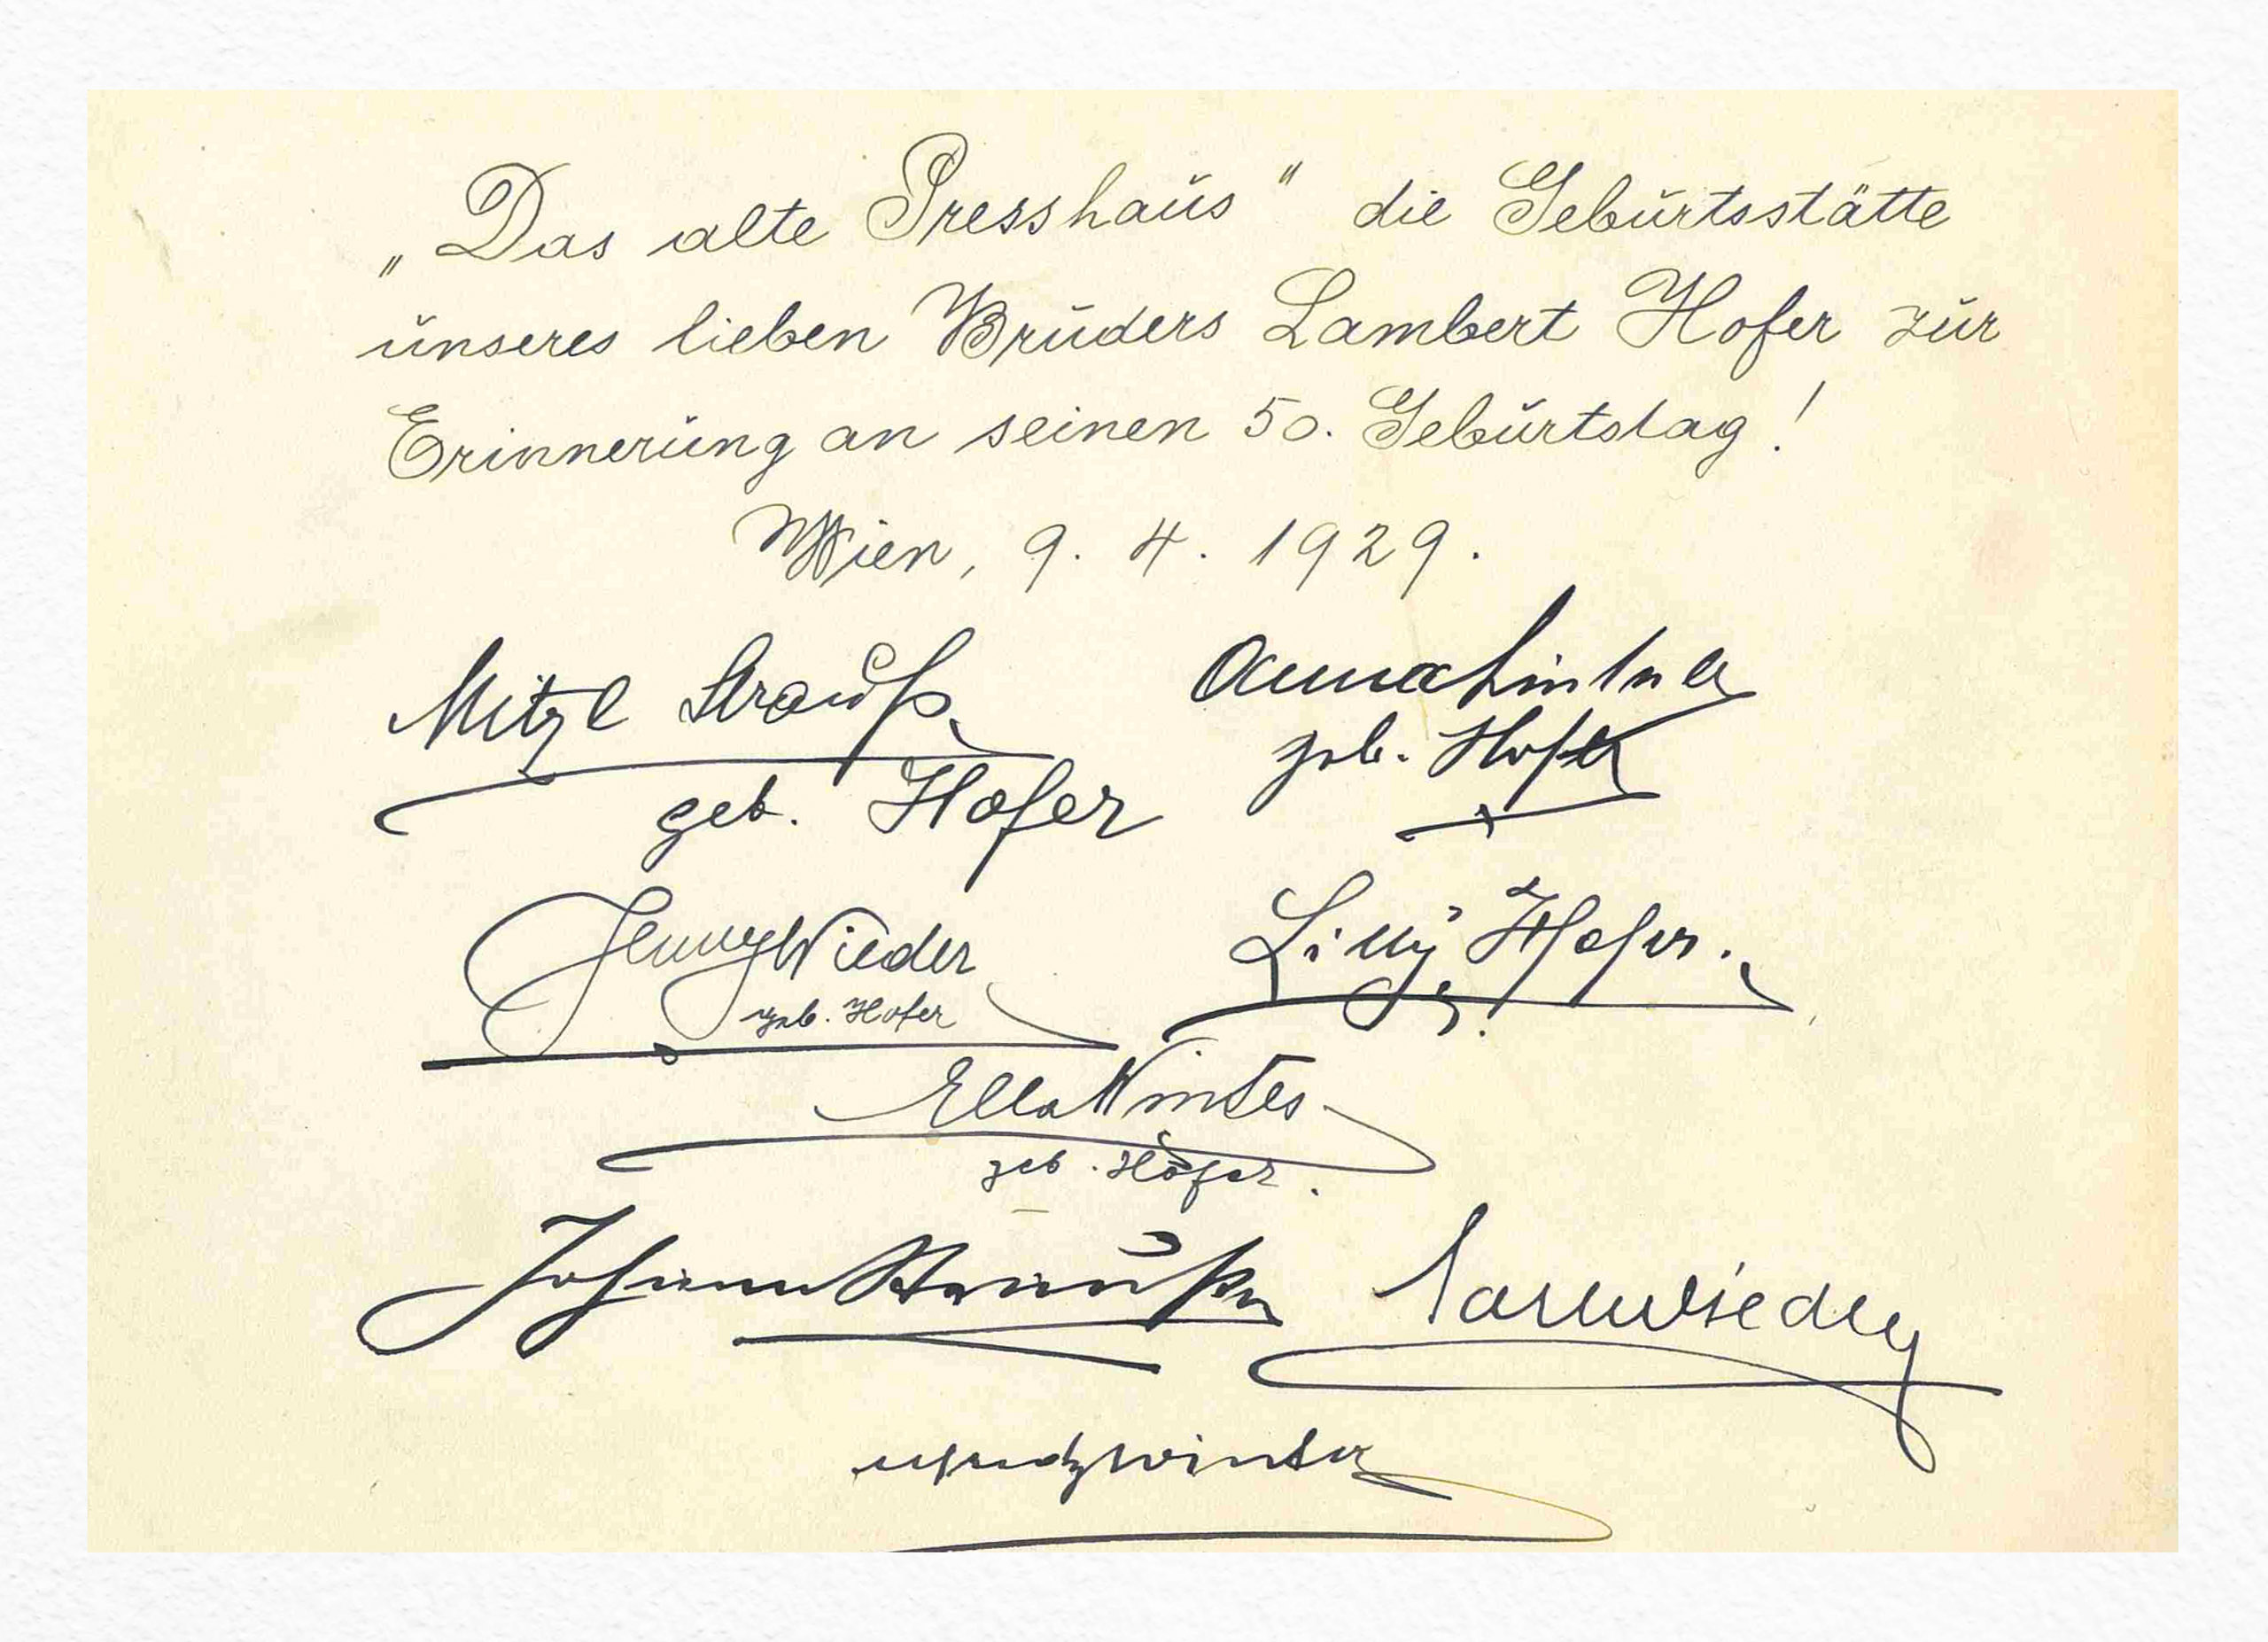 „Das alte Presshaus" die Geburtsstätte
unseres lieben Bruders Lambert Hofer zur
Erinnerung an seinen 50. Geburtstag!
Wien, 9. 4. 1929.
Mitzl Strauß
geb. Hofer
Anna Lintner
geb. Hofer
Jenny Wieder
geb. Hofer
Lilly Hofer.
Ella Winter
geb. Hofer.
Johann Strauß
Wieder
Winter